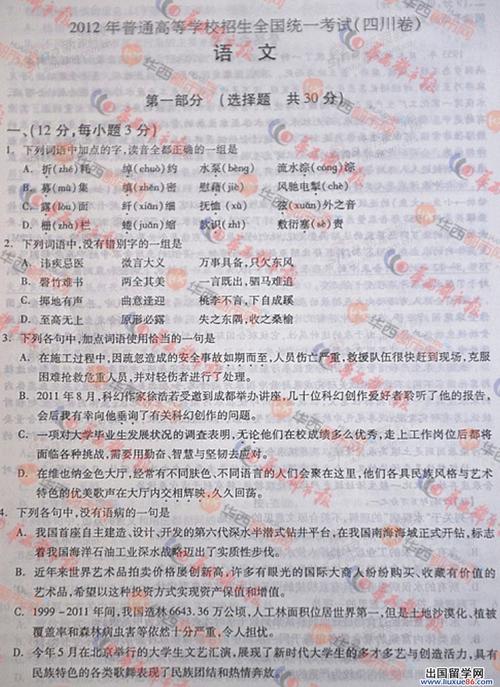 2012年普通高等学校招生全国统一考试(四川卷)
语 文
第一部分 (选择题 共30分)
一、(12分,每小题3分)
1. 下列词语中加点的字,读音全都正确的一组是
A. 折(zhé)耗 绰(chuò)约 水泵(bèng) 流水淙(cóng)淙
B. 募(mù)集 缜(zhěn)密 慰藉(jiè) 风驰电掣(chè)
C. 露(lòu)面 纤(xiān)细 抚恤(xù) 弦(xuán)外之音
D. 栅(zhà)栏 蜷(juǎn)缩 款识(zhì) 敷衍塞(sè)责
2. 下列词语中,没有错别字的一组是
A. 讳疾忌医 微言大义 万事具备,只欠东风
B. 磬竹难书 两全其美 一言既出,驷马难追
C. 掷地有声 曲意逢迎 桃李不言,下自成蹊
D. 至高无上 原形必露 失之东隅,收之桑榆
3. 下列各句中,加点词语使用恰当的一句是
A. 在施工过程中,因疏忽造成的安全事故如期而至,人员伤亡严重,救援队伍很快赶到现场,克服
困难抢救危重人员,并对轻伤者进行了处理。
B. 2011年8月,科幻作家徐浩若受邀到成都举办讲座,几十位科幻创作爱好者聆听了他的报告,
会后我有幸向他垂询了有关科幻创作的问题。
C. 一项对大学毕业生发展状况的调查表明,无论他们在校成绩多么优秀,走上工作岗位后都将
面临各种挑战,需要用勤奋、智慧与坚韧去应对。
D. 在维也纳金色大厅,经常有不同肤色、不同语言的人们会聚在这里,他们各具民族风格与艺术
特色的优美歌声在大厅内交相辉映,久久回荡。
4. 下列各句中,没有语病的一句是
A. 我国首座自主建造、设计、开发的第六代深水半潜式钻井平台,在我国南海海域正式开钻,标志
着我国海洋石油工业深水战略迈出了实质性步伐。
B. 近年来世界艺术品拍卖价格屡创新高,许多有眼光的国际大商人纷纷购买、收藏有价值的
艺术品,希望以这种投资方式实现资产保值和增值。
C. 1999-2011年间,我国造林6643.36万公顷,人工林面积位居世界第一,但是土地沙漠化、植被
覆盖率和森林病虫害等依然十分严重,令人担忧。
D. 今年5月在北京举行的大学生文艺汇演,展现了新时代大学生的多才多艺与创造活力,具有
民族特色的各类歌舞表现了民族团结和热情奔放。
华西都市报
华西都市网
出国留学网
www.liuxue86.com